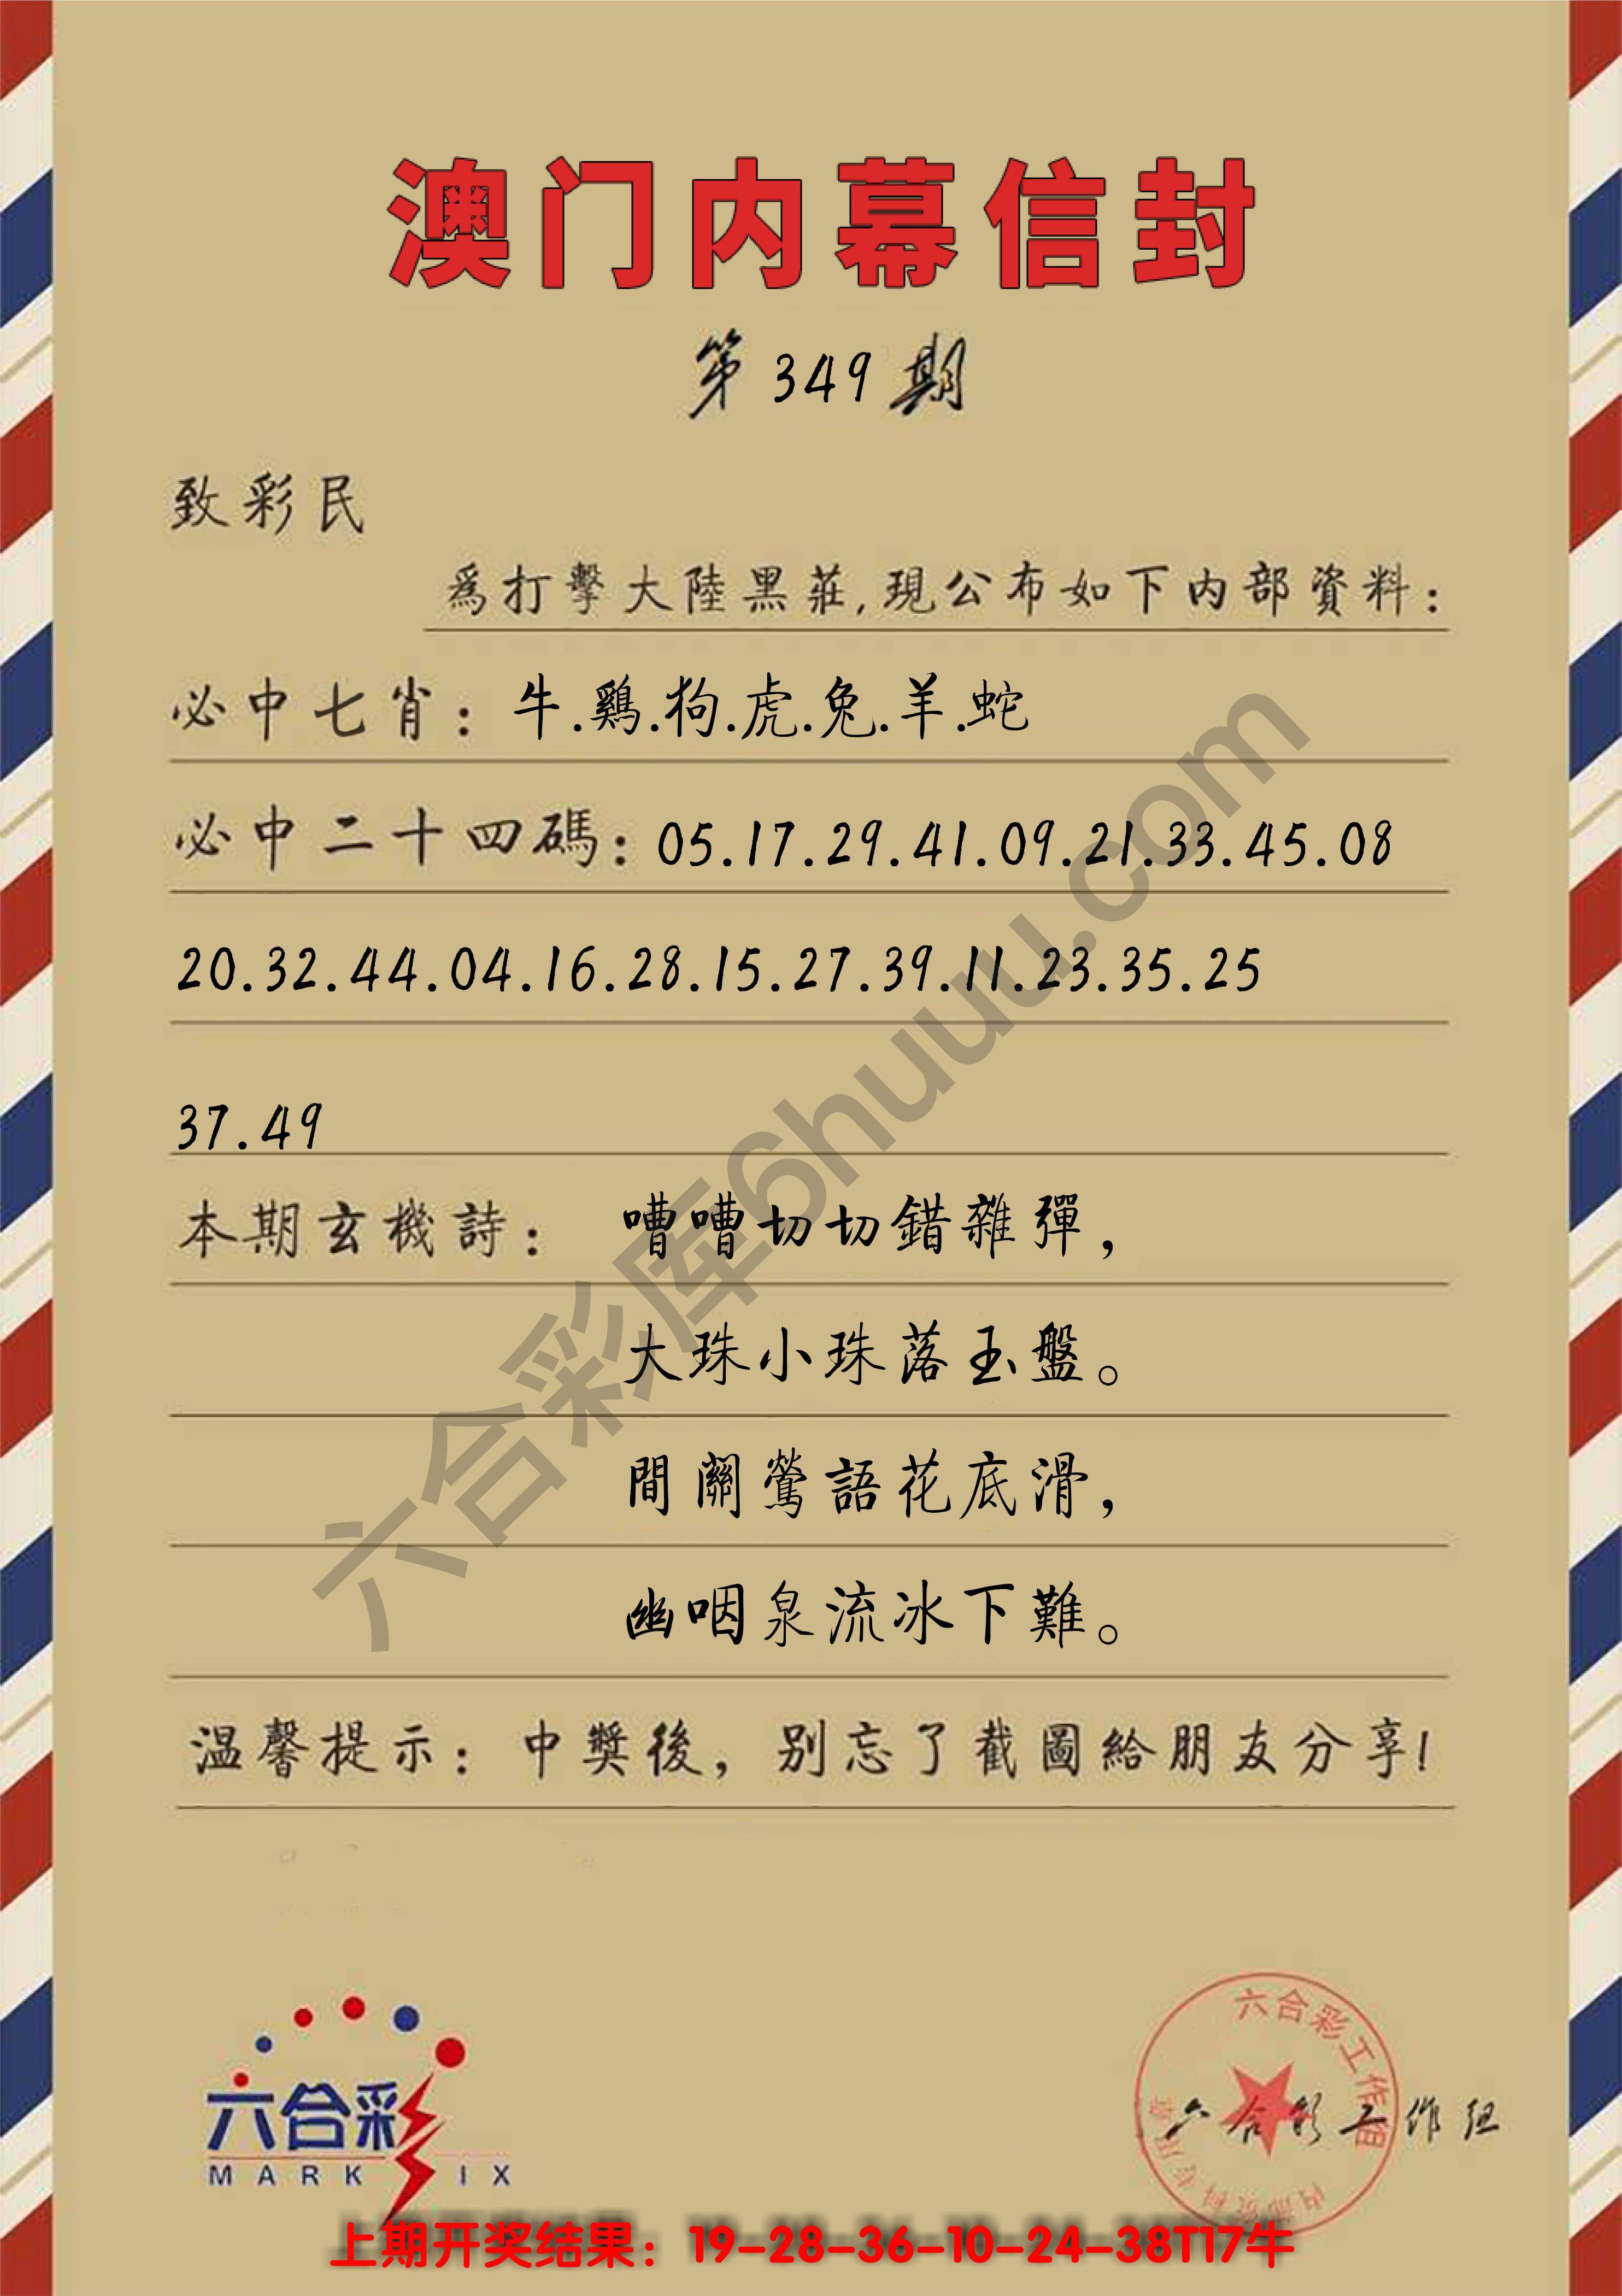 澳门内幕信封
第349期
致彩民
為打擊大陸黑莊,現公布如下内部資料:
必中七肖:牛.鷄.狗.虎.兔.羊.蛇
必中二十四碼:05.17.29.41.09.21.33.45.08
20.32.44.04.16.28.15.27.39.11.23.35.25
37.49
本期玄機詩:嘈嘈切切錯雜彈,
大珠小珠落玉盤。
間關鶯語花底滑,
幽咽泉流冰下難。
温馨提示:中獎後,别忘了截圖給朋友分享!
六合彩库6huuu.com
六合彩
MARK IX
六合彩工作组
内部资料专用章
六合彩工作组
上期开奖结果:19-28-36-10-24-38T17牛